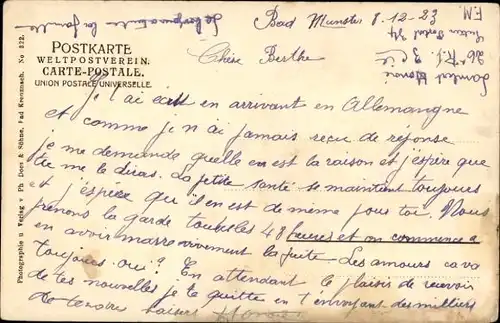 Bad Munster 8-12-23
F.M.
Chère Berthe
POSTKARTE
WELTPOSTVEREIN.
CARTE-POSTALE.
UNION POSTALE UNIVERSELLE.
J'ai ecrit en arrivant en Allemangne
et comme je n'ai jamais reçue de réponse
je me demande quelle en est la raison et j'espére que
tu me le diras. La petite santé se maintant toujours
et j'espére qu'il en est de même pour toi. Nous
prenons la garde toutes les 48 heures et on commence a
en avoir marre vivement la fuite. Les amours ca va
toujours oui? En attendant le plaisir de recevoir
de tes nouvelles je te quitte en t'envoyant des milliers
de baisers
Photographie u Verlag v Ph Dorn & Söhne, Bad Kreuznach. No 222.